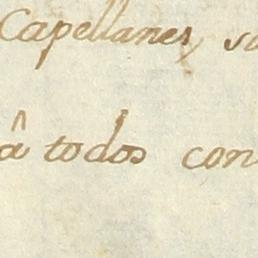 Capellanes, so
â todos con